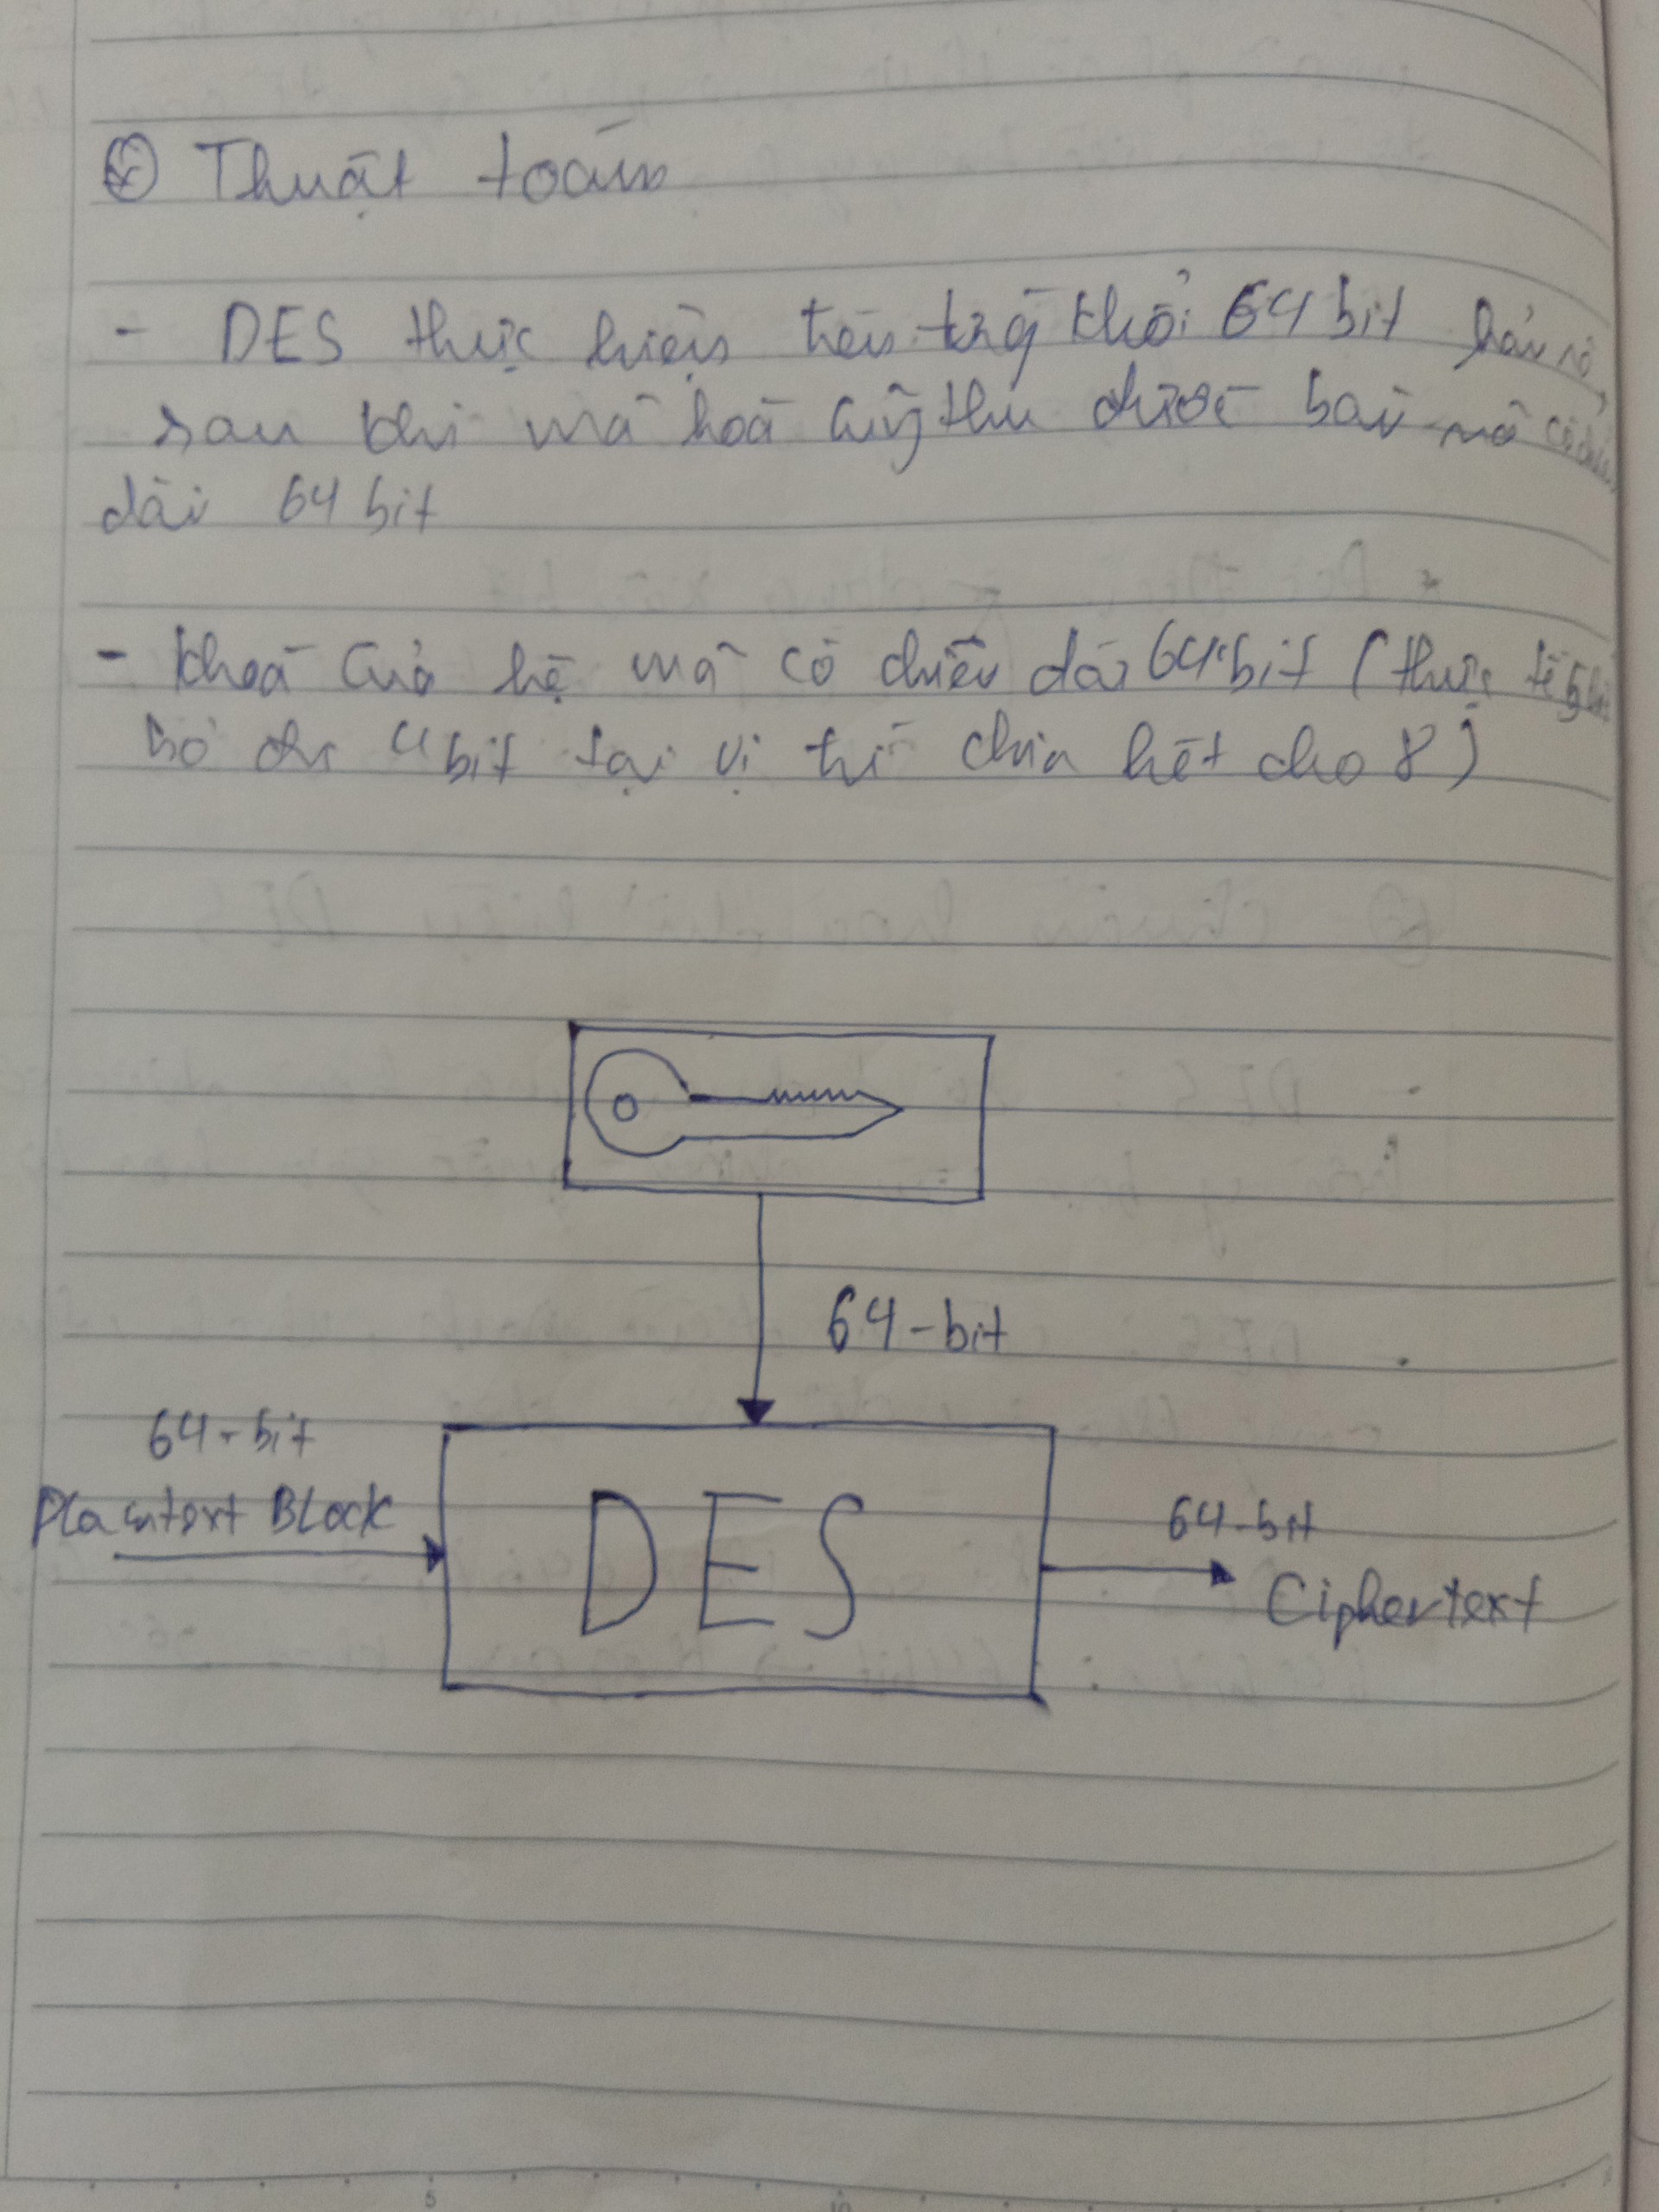 Thuật toán
- DES thực hiện trên từng khối 64 bit bản rõ
sau khi mã hoá cũng thu được bản mã có chiều
dài 64 bit
- Khoá của hệ mã có chiều dài 64 bit (thực tế
bỏ đi 4 bit tại vị trí chia hết cho 8)
64-bit
64-bit
Plaintext Block
DES
64-bit
Ciphertext
5
10